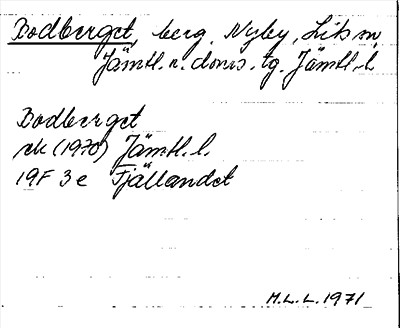 Bodberget, berg, Nyby, Lits sn,
Jämtl. n. doms. tg. Jämtl. l.
Bodberget
ek (1970) Jämtl. l.
19F 3e Fjällandet
M.L.L. 1971